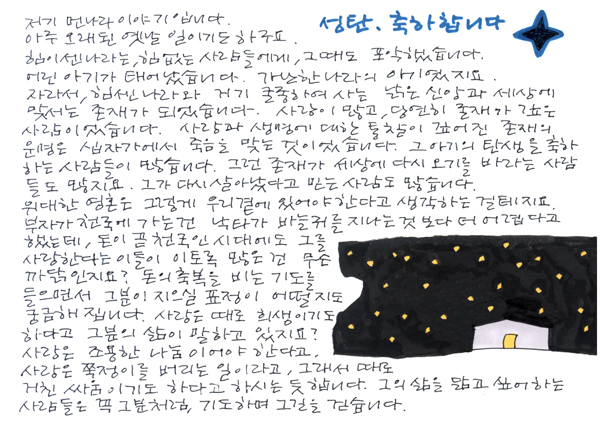 성탄. 축하합니다
저기 먼나라 이야기입니다.
아주 오래된 옛날 일이기도 하구요.
힘이 센 나라는, 힘없는 사람들에게, 그때도 포악했습니다.
어린 아기가 태어났습니다. 가난한 나라의 아기였지요.
자라서, 힘센 나라와 거기 굴종하여 사는 낡은 신앙과 세상에
맞서는 존재가 되었습니다. 사랑이 많고, 당연히 존재가 깊은
사람이었습니다. 사람과 생명에 대한 통찰이 깊어진 존재의
운명은 십자가에서 죽음을 맞는 것이었습니다. 그 아기의 탄생을 축하
하는 사람들이 많습니다. 그런 존재가 세상에 다시 오기를 바라는 사람
들도 많지요. 그가 다시 살아났다고 믿는 사람도 많습니다.
위대한 영혼은 그렇게 우리곁에 있어야 한다고 생각하는 걸테지요.
부자가 천국에 가는 건 낙타가 바늘귀를 지나는 것 보다 더 어렵다고
했는데, 돈이 곧 천국인 시대에도 그를
사랑한다는 이들이 이토록 많은 건 무슨
까닭인지요? 돈의 축복을 비는 기도를
들으면서 그분이 지으실 표정이 어떨지도
궁금해집니다. 사랑은 때로 희생이기도
하다고 그분의 삶이 말하고 있지요?
사랑은 조용한 나눔이어야 한다고,
사랑은 쭉정이를 버리는 일이라고, 그래서 때로
거친 싸움이기도 하다고 하시는 듯 합니다. 그의 삶을 닮고 싶어하는
사람들은 꼭 그분처럼, 기도하며 그 길을 걷습니다.